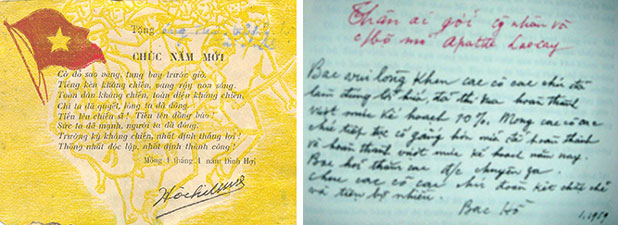 Tặng
CHÚC NĂM MỚI
Cờ đỏ sao vàng, tung bay trước gió,
Tiếng kèn kháng chiến, vang dậy non sông.
Toàn dân kháng chiến, toàn diện kháng chiến,
Chí ta đã quyết, lòng ta đã đồng.
Tiến lên chiến sĩ! Tiến lên đồng bào!
Sức ta đã mạnh, người ta đã đông.
Trường kỳ kháng chiến, nhất định thắng lợi!
Thống nhất độc lập, nhất định thành công!
Mồng 1 tháng 1 năm Đinh Hợi
Hochiminh
Thân ái gởi công nhân và
cán bộ mỏ Apatite Laocay
Bác vui lòng khen các cô các chú đã
hoàn thành
vượt mức kế hoạch 10%. Mong các cô các
chú tiếp tục cố gắng hơn nữa để hoàn thành
và hoàn thành vượt mức kế hoạch năm nay.
Bác hỏi thăm các đ/c chuyên gia.
Chúc các cô các chú đoàn kết chặt chẽ
và tiến bộ nhiều.
Bác Hồ
1.1959